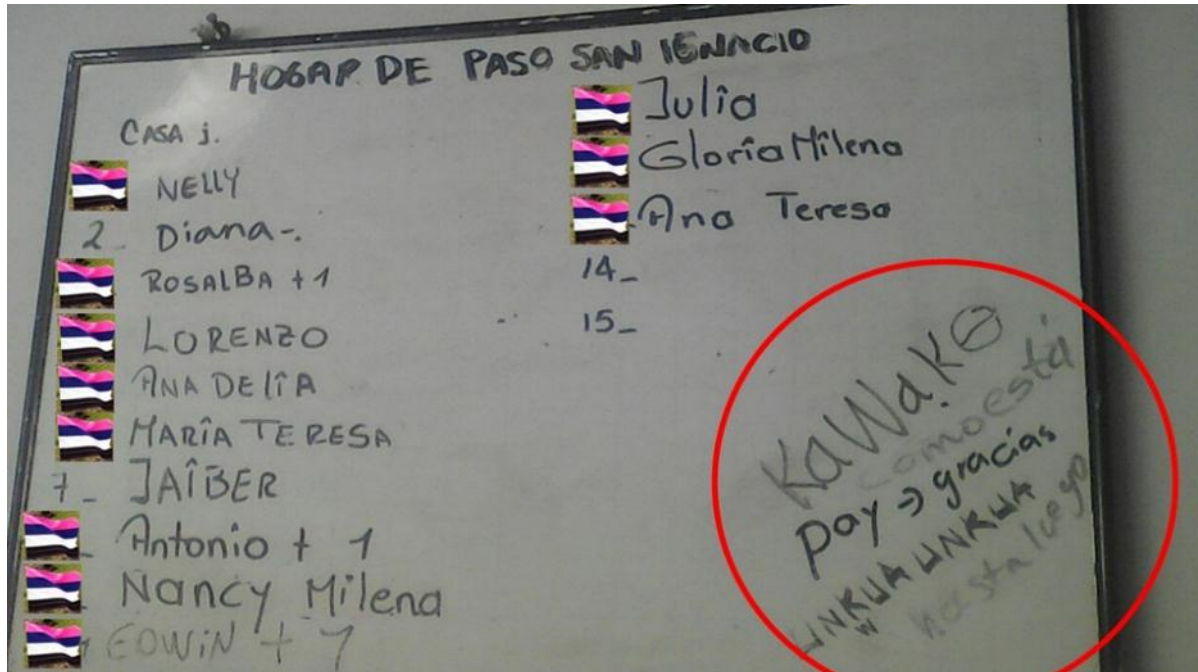 HOGAR DE PASO SAN IGNACIO
CASA j.
NELLY
2_ Diana-.
ROSALBA + 1
LORENZO
ANA DELIA
MARÍA TERESA
7_ JAÍBER
Antonio + 1
Nancy Milena
EDWIN + 7
Julia
Gloria Milena
Ana Teresa
14_
15_
KaWaKO
como está
pay → gracias
UNKUA UNKUA
hasta luego